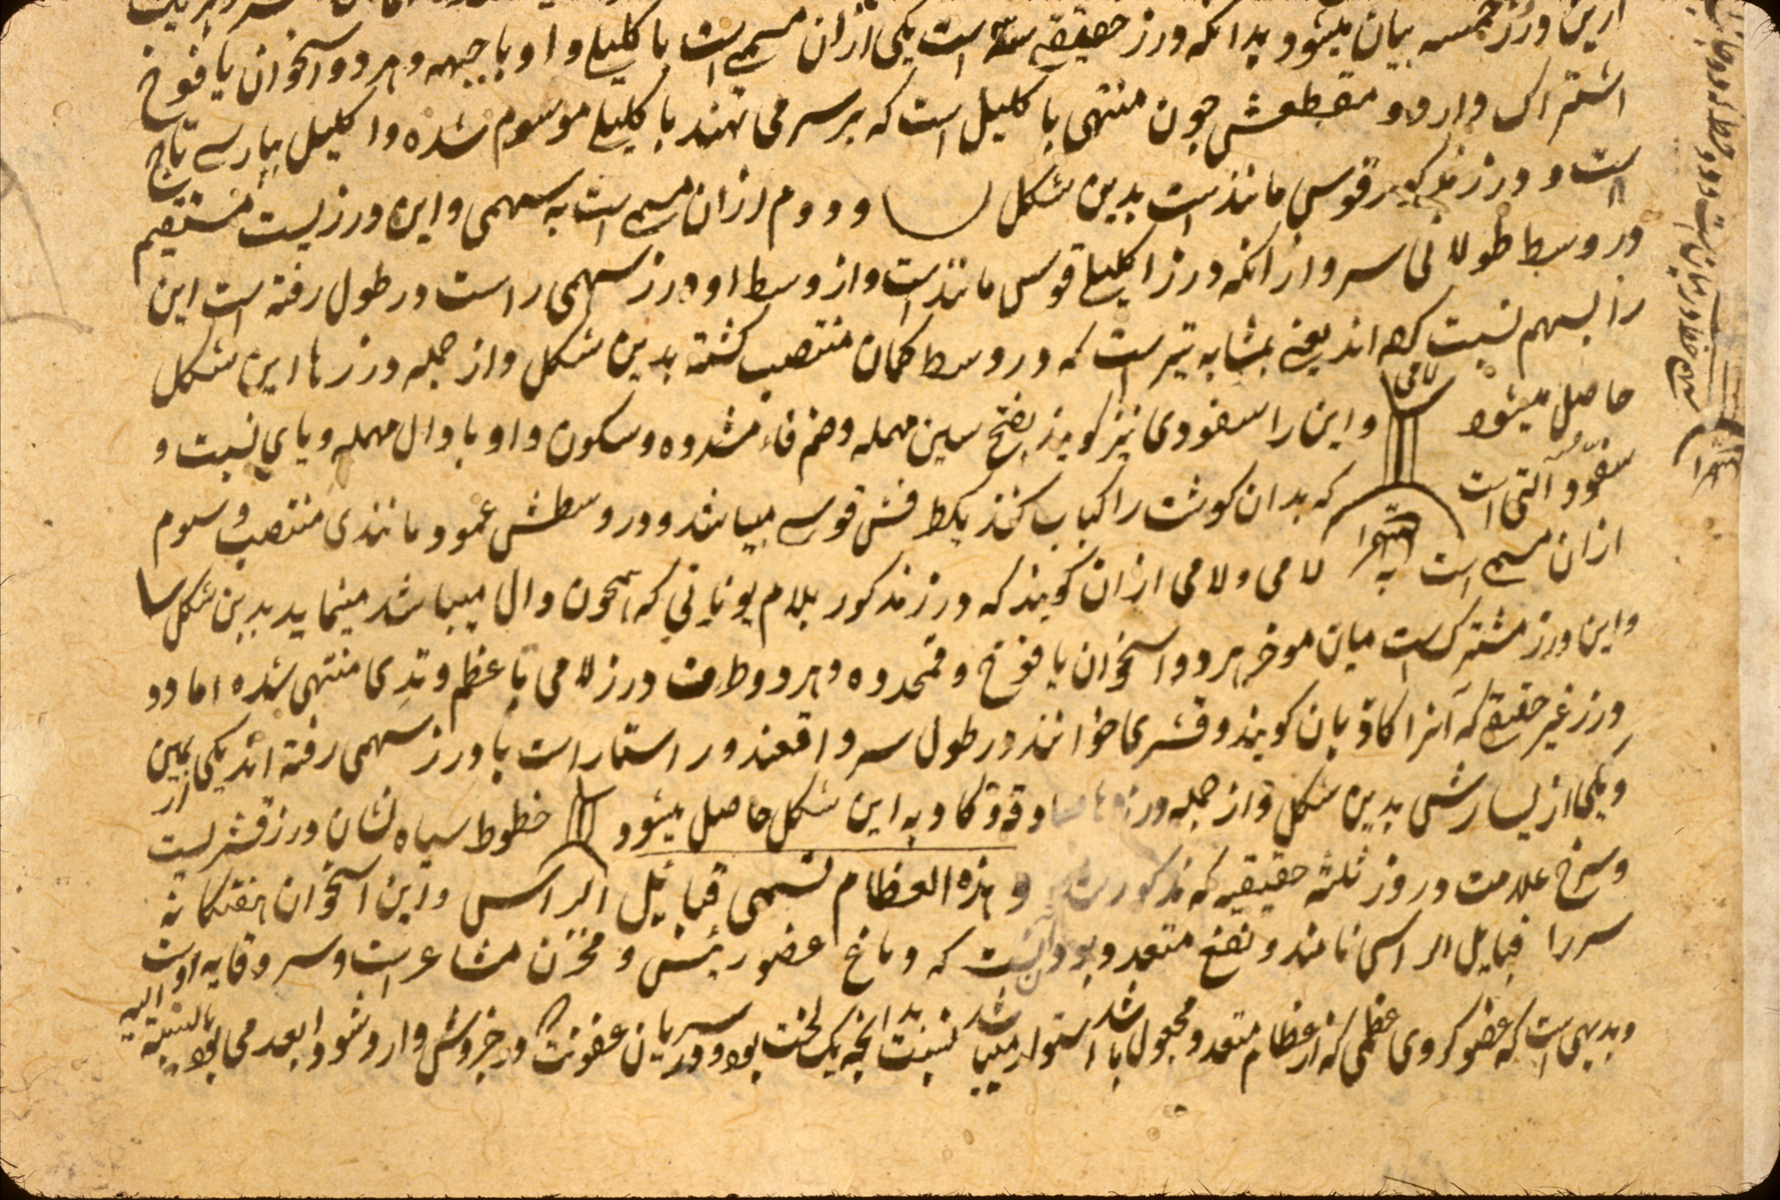 ازین درز خمسه بیان میشود بدانکه درز حقیقی سه است یکی ازان مسمی است باکلیلی و او با جبهه و هر دو اسخوان یافوخ
اشتراک دارد و مقطعش چون منتهی با کلیل است که بر سر می نهند باکلیلی موسوم شده و اکلیل بپارسی تاج
است و درز مذکور قوسی مانند است بدین شکل و دوم ازان مسمی است به سهمی و این درزیست مستقیم
در وسط طولانی سر و ازانکه درز اکلیلی قوس مانند است و از وسط او درز سهمی راست در طول رفته است این
را بسهم نسبت کرده اند یعنی بمشابه تیر است که در وسط کمان منتصب کشته بدین شکل و از جمله درزها این شکل
حاصل میشود و این را سفودی نیز کویند بفتح سین مهمله و ضم فاء مشدده و سکون واو با دال مهمله و یای نسبت و
سفود آلتی است که بدان کوشت را کباب کنند یکطرفش قوسی میباشد و در وسطش عمود مانندی منتصب و سوم
ازان مسمی است به لامی و لامی ازان کویند که درز مذکور بلام یونانی که همچون دال میباشد مینماید بدین شکل
و این درز مشترک است میان موخر هر دو اسخوان یافوخ و قمحدوه و هر دو طرف درز لامی با عظم وتدی منتهی شده اما دو
درز غیر حقیقی که آنرا کاذبان کویند و قشری خوانند در طول سر واقعند و راستا راست با درز سهمی رفته اند یکی از یمین
و یکی از یسارش بدین شکل و از جمله درزها صادقه و کاذبه این شکل حاصل میشود خطوط سیاه نشان درز قشریست
و سرخ علامت دروز ثلثه حقیقیه که مذکور شد و هذه العظام تسمی قبائل الراس و این اسخوان هفتکانه
سر را قبایل الراس نامند و نفع متعدد بودن آنست که دماغ عضو رئیس و مخزن مشاعر است و سر وقایه اوست
و بدیهی است که عضو کروی عظمی که از عظام متعدد مجعول باشد استوار میباشد بنسبت آنچه یک لخت بود و در سریان عفونت در جزوش وارد شود ابعد می بود بالنسبة الیه